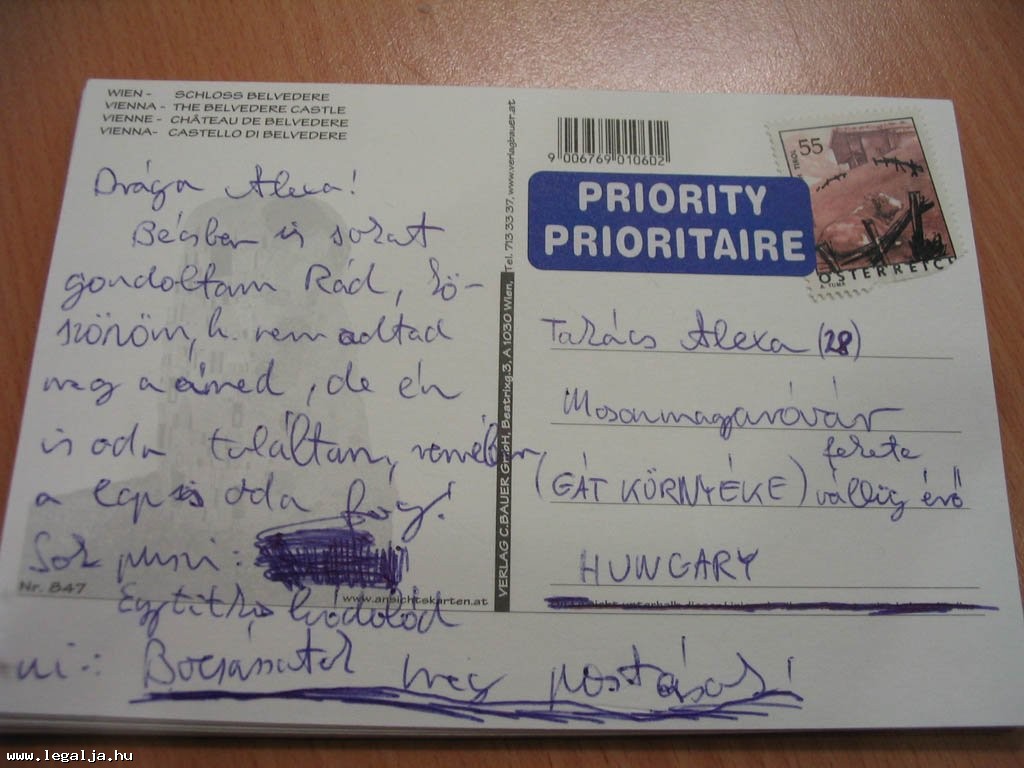 WIEN - SCHLOSS BELVEDERE
VIENNA - THE BELVEDERE CASTLE
VIENNE - CHÂTEAU DE BELVEDERE
VIENNA- CASTELLO DI BELVEDERE
Drága Alexa!
Bécsben is sokat
gondoltam Rád, kö-
szönöm, h. nem adtad
meg a címed, de én
is oda találtam, remélem
a lap is oda fog!
Sok pusi:
Egy titkos hódolód
ui.: Bocsássatok meg postások!
Nr. 847
www.ansichtskarten.at
VERLAG C.BAUER GmbH, Beatrixg.3, A 1030 Wien, Tel. 713 33 37, www.verlagbauer.at
9 006769 010602
PRIORITY
PRIORITAIRE
55
TIROL
ÖSTERREICH
A. TUMA
Takács Alexa (28)
Mosonmagyaróvár
(GÁT KÖRNYÉKE) fekete
vállig érő
HUNGARY
www.legalja.hu